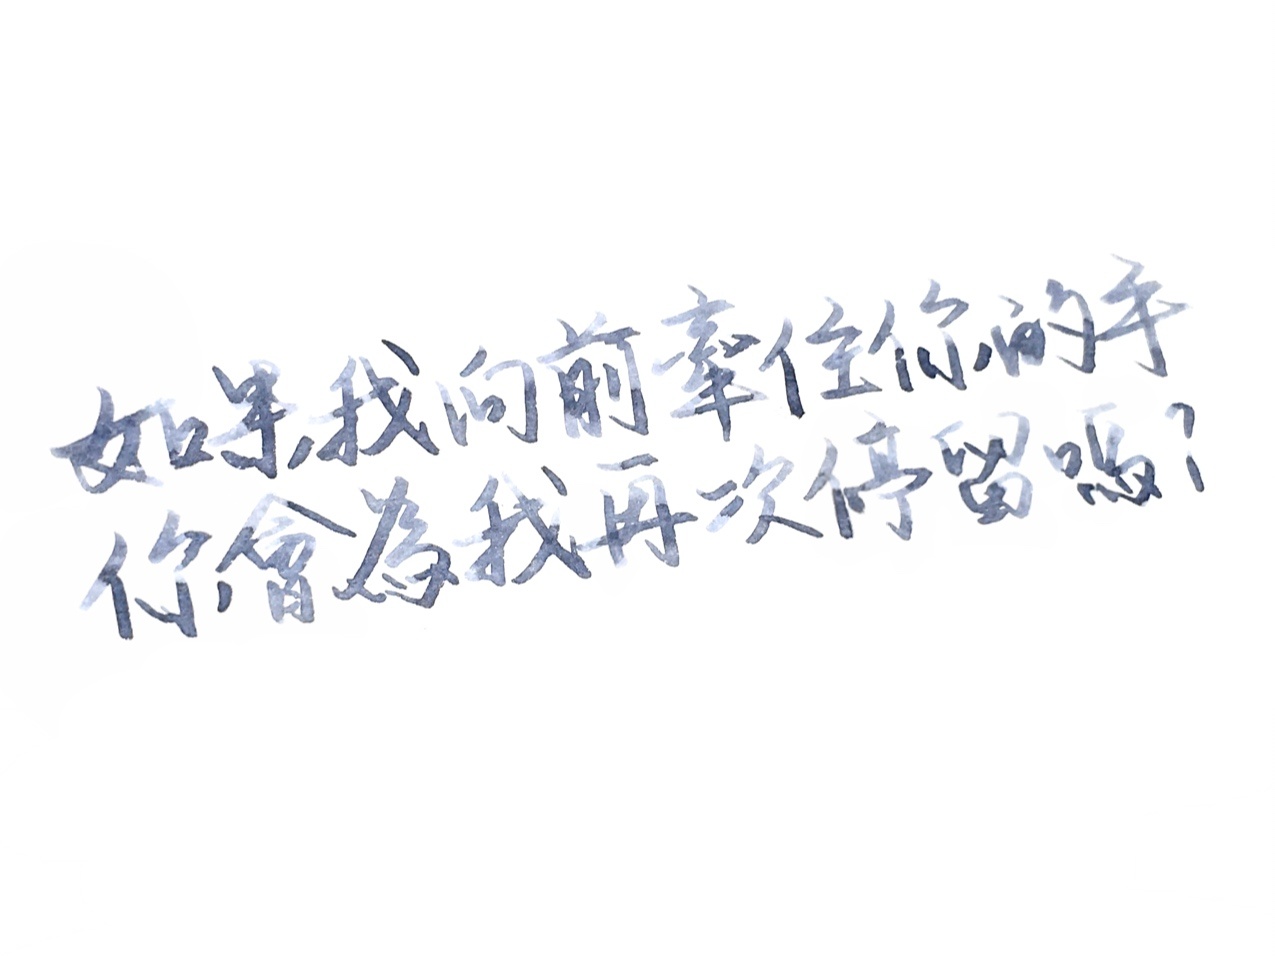 如果我向前牽住你的手
你會為我再次停留嗎?